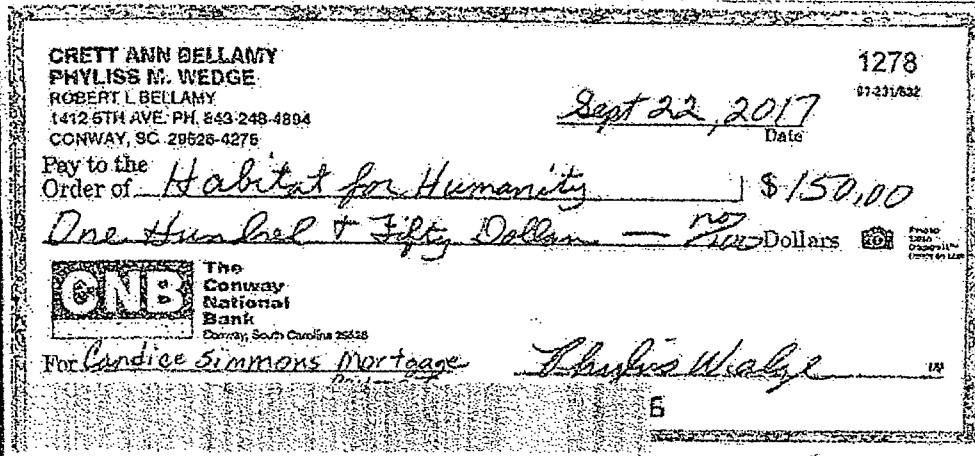 CRETT ANN BELLAMY
PHYLISS M. WEDGE
ROBERT L BELLAMY
1412 5TH AVE. PH. 843-248-4804
CONWAY, SC 29526-4275
1278
Sept 22, 2017
Date
Pay to the
Order of Habitat for Humanity $150.00
One Hundred & Fifty Dollars — no/100 Dollars
CNB
The
Conway
National
Bank
Conway, South Carolina 29526
For Candice Simmons Mortgage
Phyliss Wedge
6